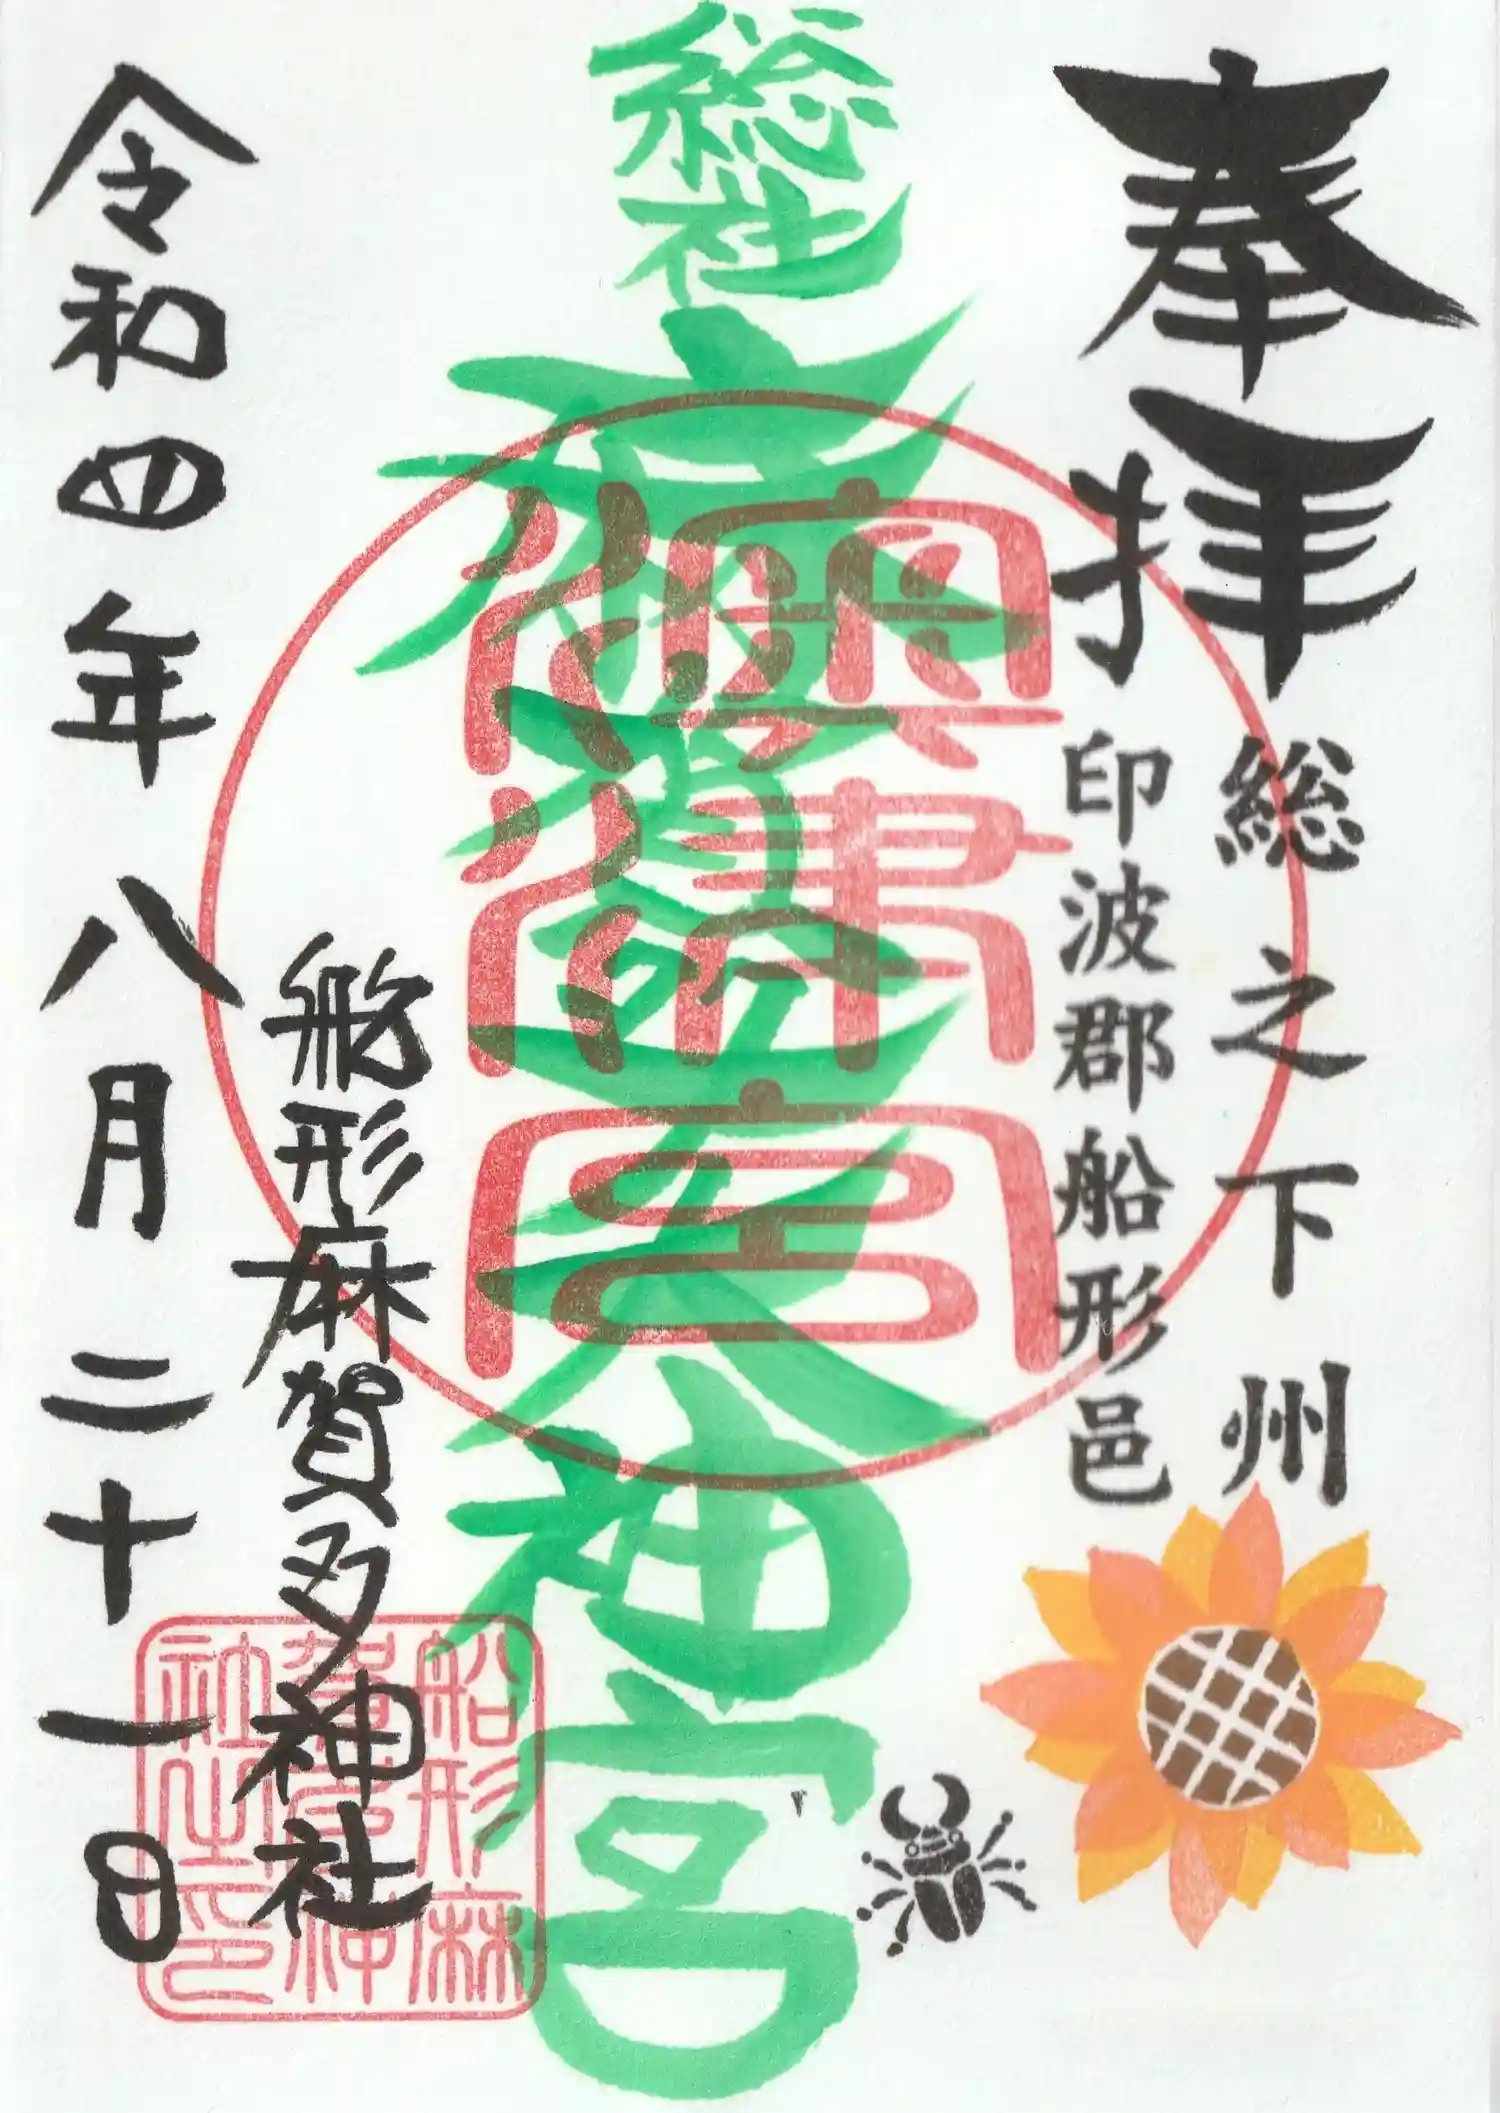 奉拝
総之下州
印波郡船形邑
総社
麻賀多大神宮
船形麻賀多神社
令和四年八月二十一日
船形麻
賀多神
社之印